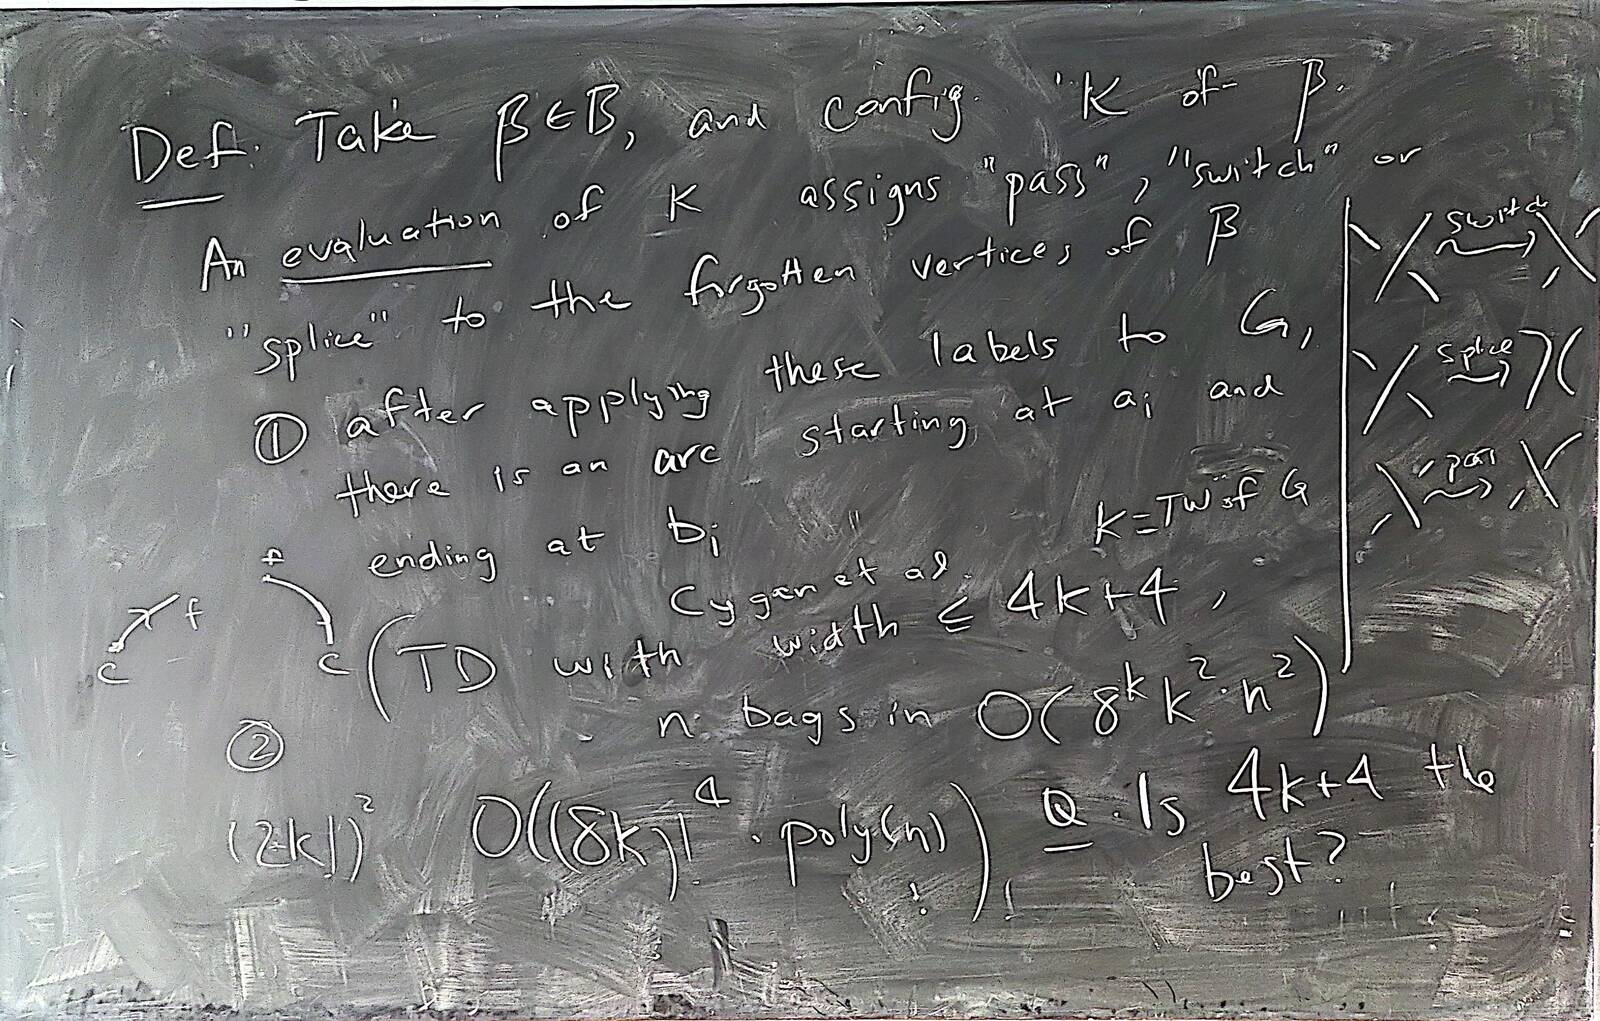 Def: Take β∈B, and config. K of β.
An evaluation of K assigns "pass", "switch" or
"splice" to the forgotten vertices of β
① after applying these labels to G,
there is an arc starting at aᵢ and
ending at bᵢ
switch
splice
pass
k=TW of G
Cygan et al.
(TD with width ≤ 4k+4,
n bags in O(8ᵏk²·n²))
f
f
c
c
②
(2k!)²
O((8k)!⁴ · poly(n))
Q. Is 4k+4 the
best?